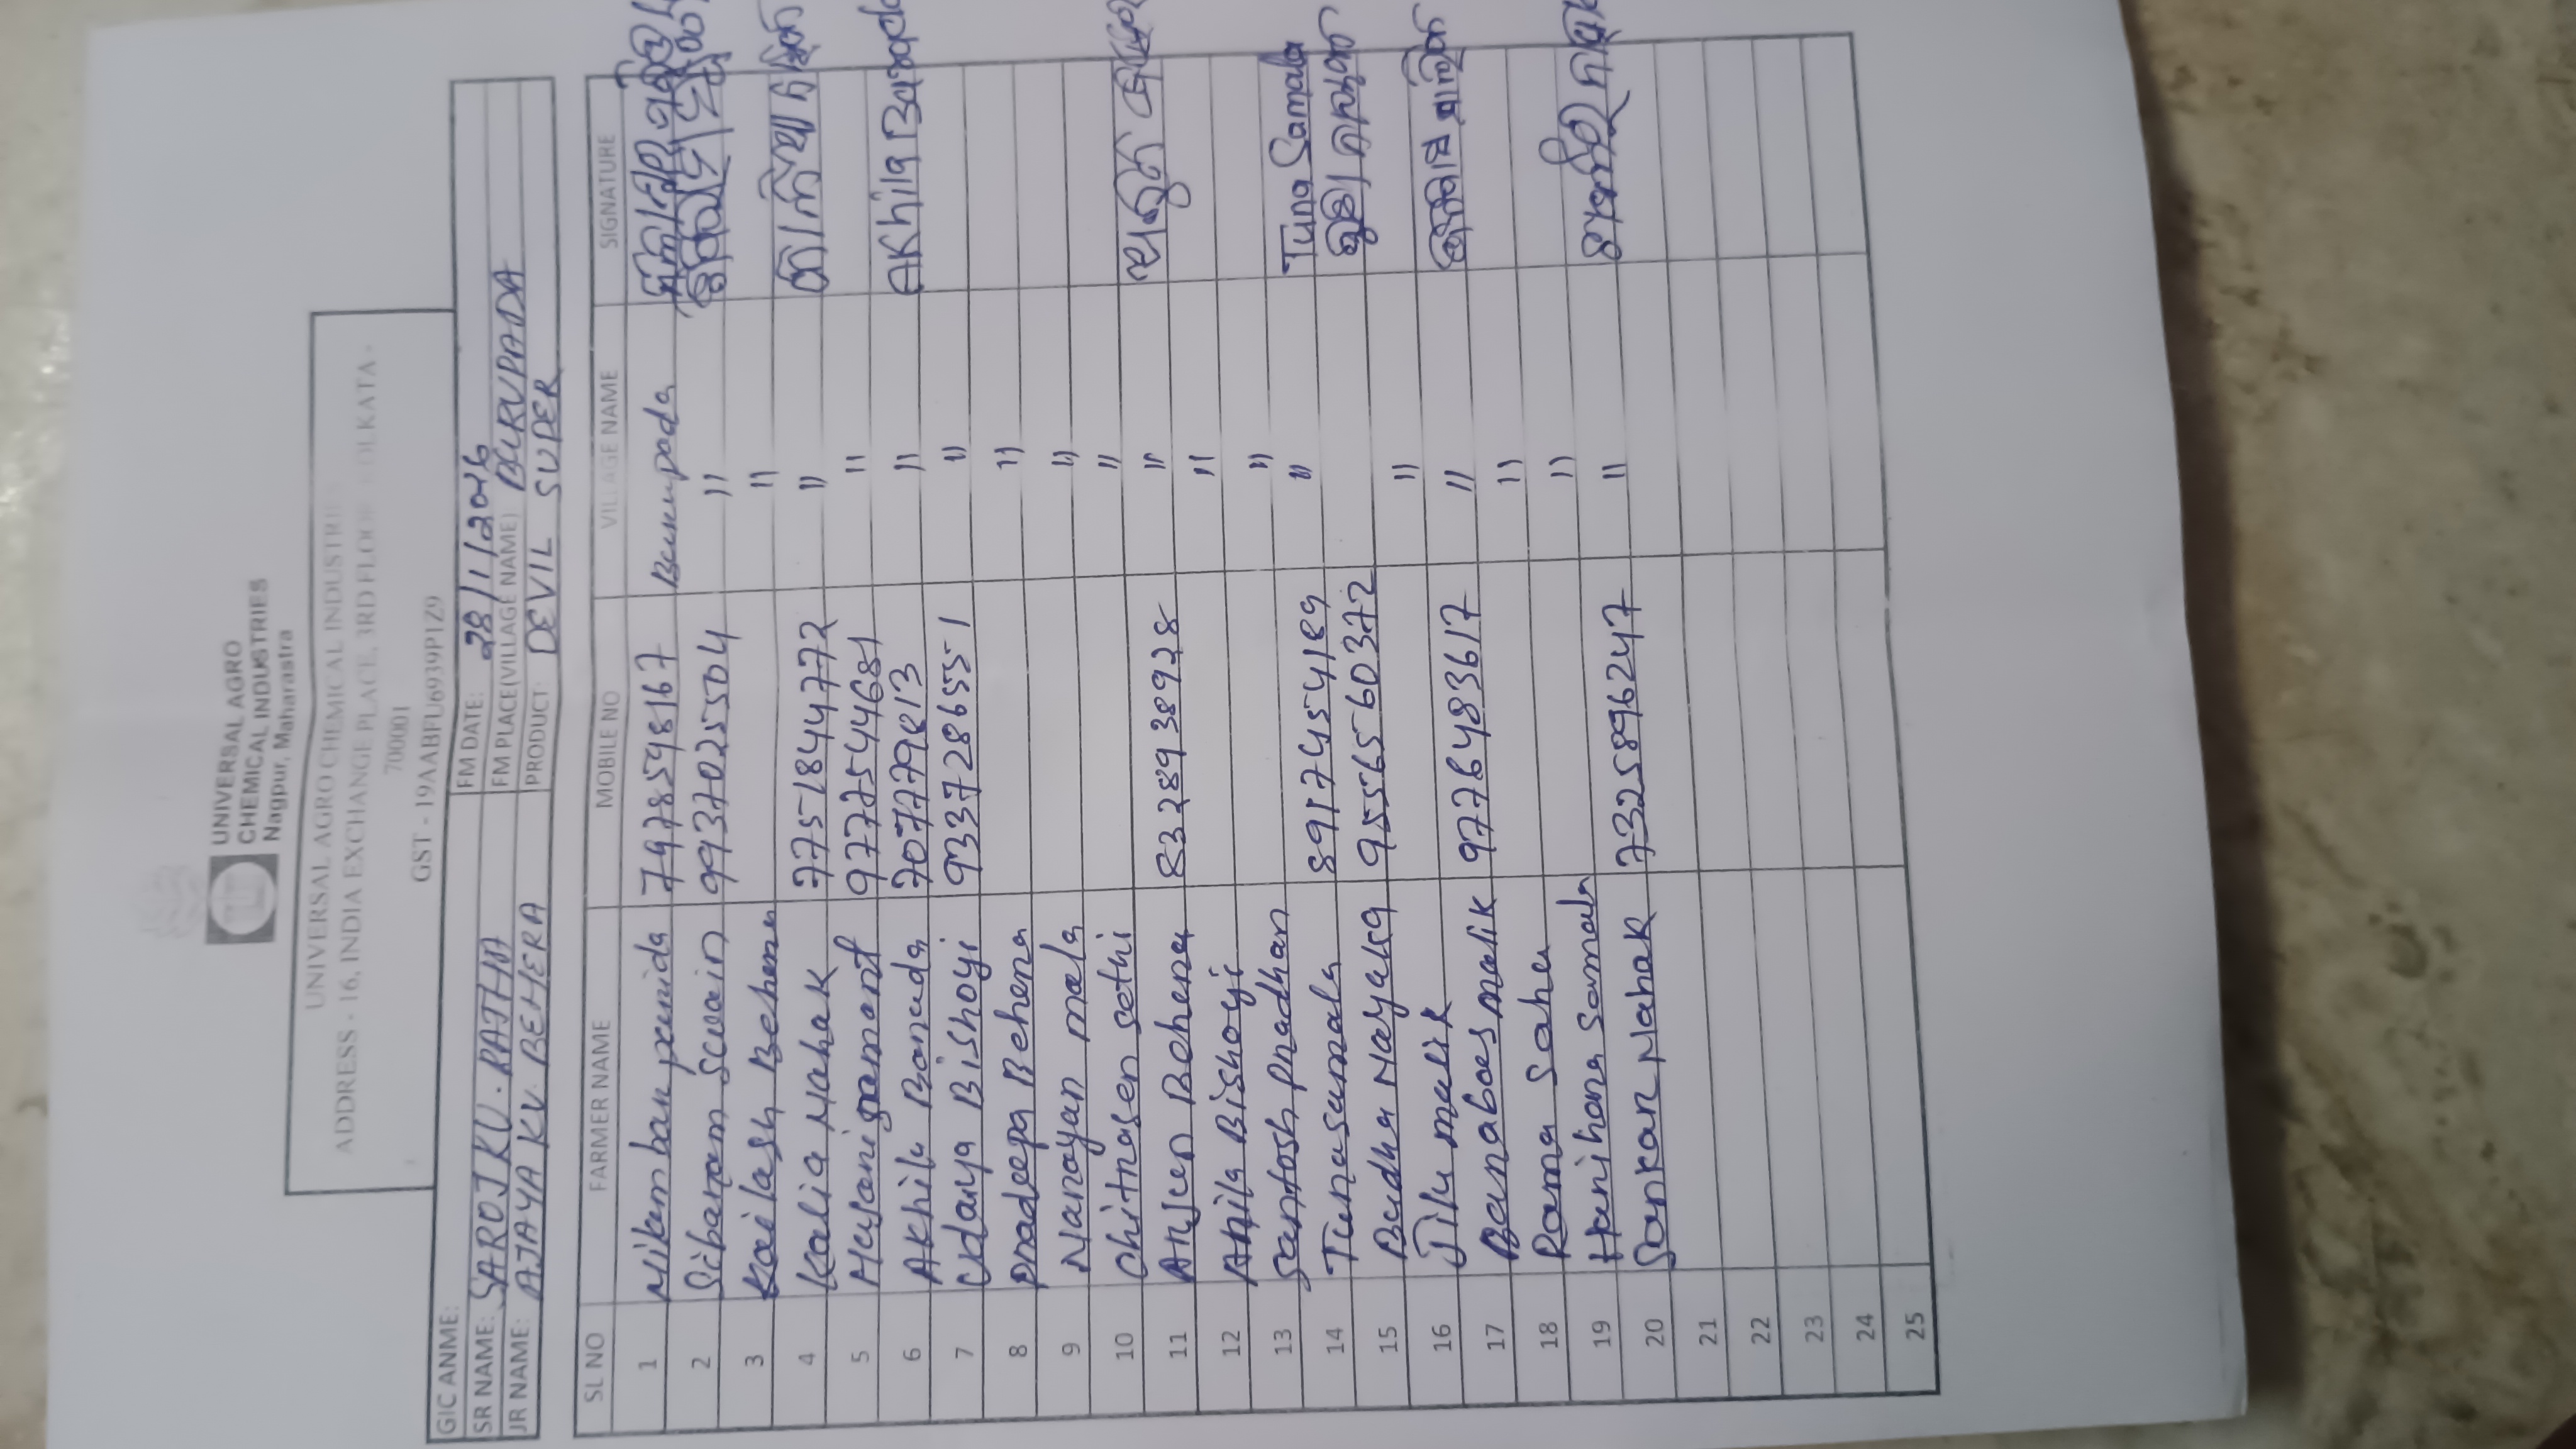 UNIVERSAL AGRO
CHEMICAL INDUSTRIES
Nagpur, Maharastra
UNIVERSAL AGRO CHEMICAL INDUSTRIES
ADDRESS - 16, INDIA EXCHANGE PLACE, 3RD FLOOR KOLKATA -
700001
GST - 19AABFU6939P1Z9
GIC ANME: FM DATE: 28/1/2026
SR NAME: SAROJ KU. RATHA FM PLACE(VILLAGE NAME) BURUPADA
JR NAME: AJAYA KU. BEHERA PRODUCT: DEVIL SUPER
SL NO FARMER NAME MOBILE NO VILLAGE NAME SIGNATURE
1 Nilambar parida 7978598167 Burupada
2 Sibaram Swain 9937025504 "
3 Kailash Behera "
4 Kalia Nahak 7751844772 " କାଳିଆ
5 9777544681 "
6 Akhila Barada 7077779813 " Akhila Barada
7 Udaya Bishoyi 9337286551 "
8 pradeepa Behera "
9 Narayan mala "
10 Chitrasen sethi "
11 Arjun Behera 8328938928 "
12 Bishoyi "
13 Santosh pradhan "
14 Tunasamala 8917455419 " Tuna Samala
15 Budha Nayaka 9556560372
16 Jilu malik "
17 malik 9776483617 "
18 Rama Sahu "
19 Harihara Samala "
20 Sankar Nahak 7325896247 "
21
22
23
24
25